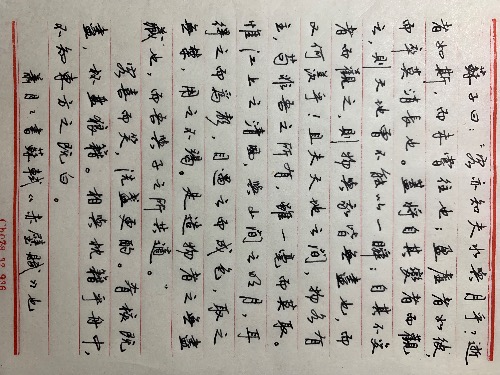 蘇子曰：“客亦知夫水與月乎？逝
者如斯，而未嘗往也；盈虛者如彼，
而卒莫消長也。蓋將自其變者而觀
之，則天地曾不能以一瞬；自其不变
者而觀之，則物與我皆無盡也，而
又何羨乎！且夫天地之間，物各有
主，苟非吾之所有，雖一毫而莫取。
惟江上之清風，與山間之明月，耳
得之而為聲，目遇之而成色，取之
無禁，用之不竭。是造物者之無盡
藏也，而吾與子之所共適。”
客喜而笑，洗盞更酌。肴核既
盡，杯盤狼籍。相與枕藉乎舟中，
不知東方之既白。
書蘇軾《赤壁賦》也